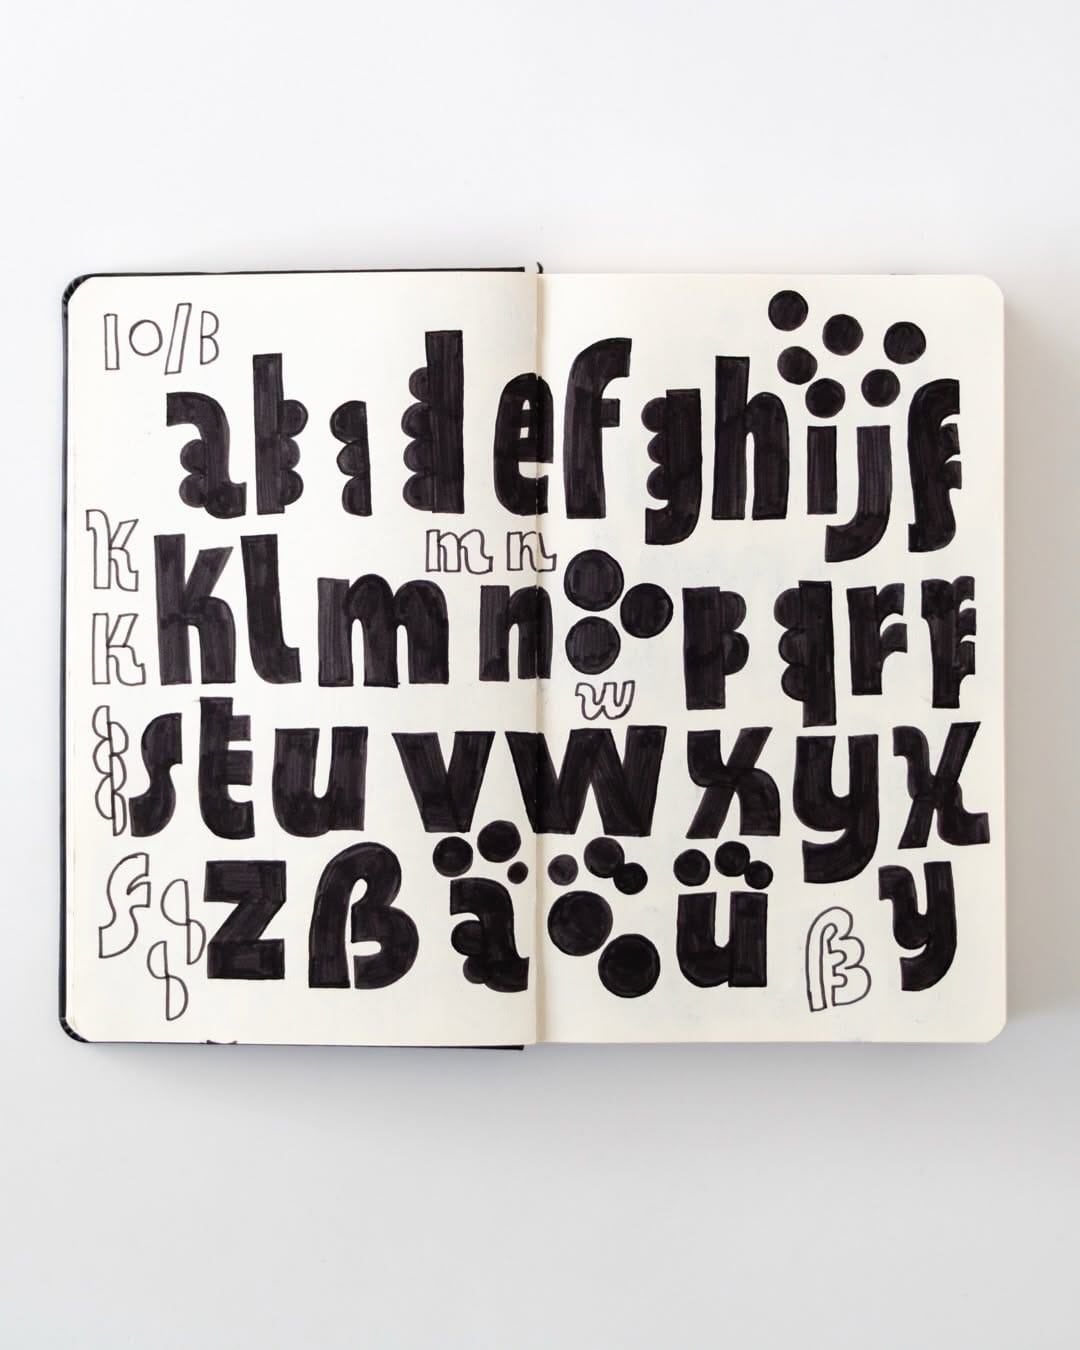 10/B
abcdefghijf
k klmnopqrr
m n
k
w
stuvwxyx
f zßäöüßy